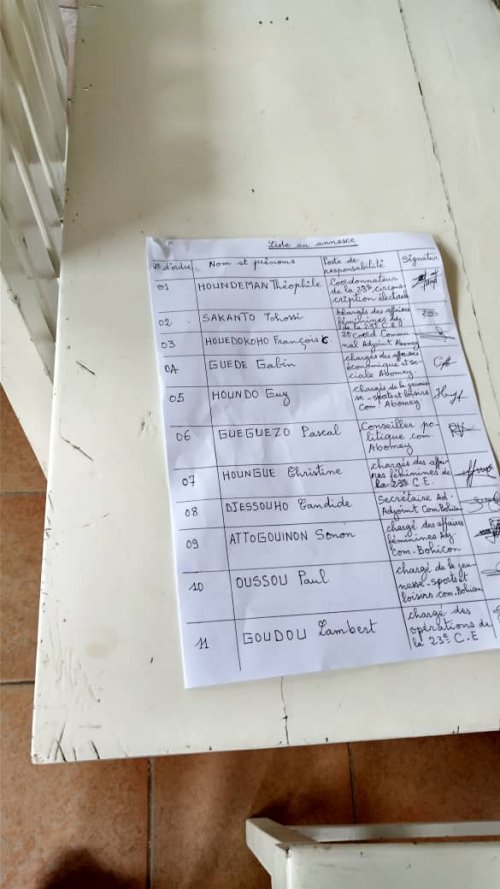 Liste en annexe
N° d'ordre Nom et prénoms Poste de responsabilité Signature
01 HOUNDEMAN Théophile Coordonnateur
de la 23e circons
cription électorale
02 SAKANTO Tohossi chargée des affaires
féminines Adj
de la 23e C.E
03 HOUEDOKOHO François C. 2e coord Commu
nal Adjoint Abomey
04 GUEDE Gabin chargés des affaires
économique et so-
ciale Abomey.
05 HOUNDO Guy chargés de la jeunes
se-sports et loisirs
com. Abomey
06 GUEGUEZO Pascal Conseiller po-
litique com
Abomey
07 HOUNGUE Christine chargés des affai-
res féminines de
la 23e C.E.
08 DJESSOUHO Candide Secrétaire Ad.
Adjoint Com.Bohicon
09 ATTOGOUINON Sonon chargé des affaires
féminines Adj
com-Bohicon
10 OUSSOU Paul chargé de la jeu-
nesse-sports et
loisirs com.Bohicon
11 GOUDOU Lambert chargé des
opérations de
la 23e C.E